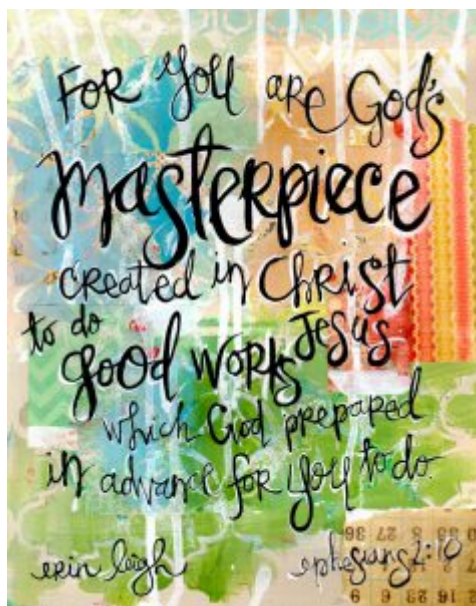 FOR YOU ARE GOD'S
masterpiece
created in CHRIST
to do JESUS
good works
which God prepared
in advance for you to do.
erin leigh
ephesians 2:10